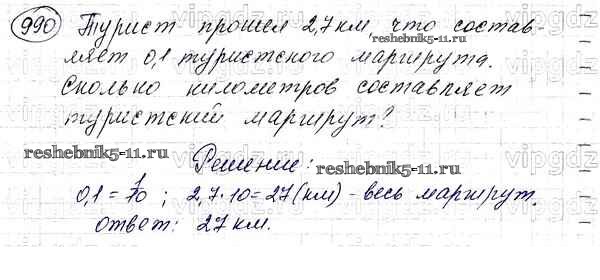 990 Турист прошел 2,7 км, что состав-
ляет 0,1 туристского маршрута.
Сколько километров составляет
туристский маршрут?
Решение:
0,1 = 1/10 ; 2,7 · 10 = 27 (км) - весь маршрут.
ответ: 27 км.
reshebnik5-11.ru
reshebnik5-11.ru
reshebnik5-11.ru
reshebnik5-11.ru
vipgdz